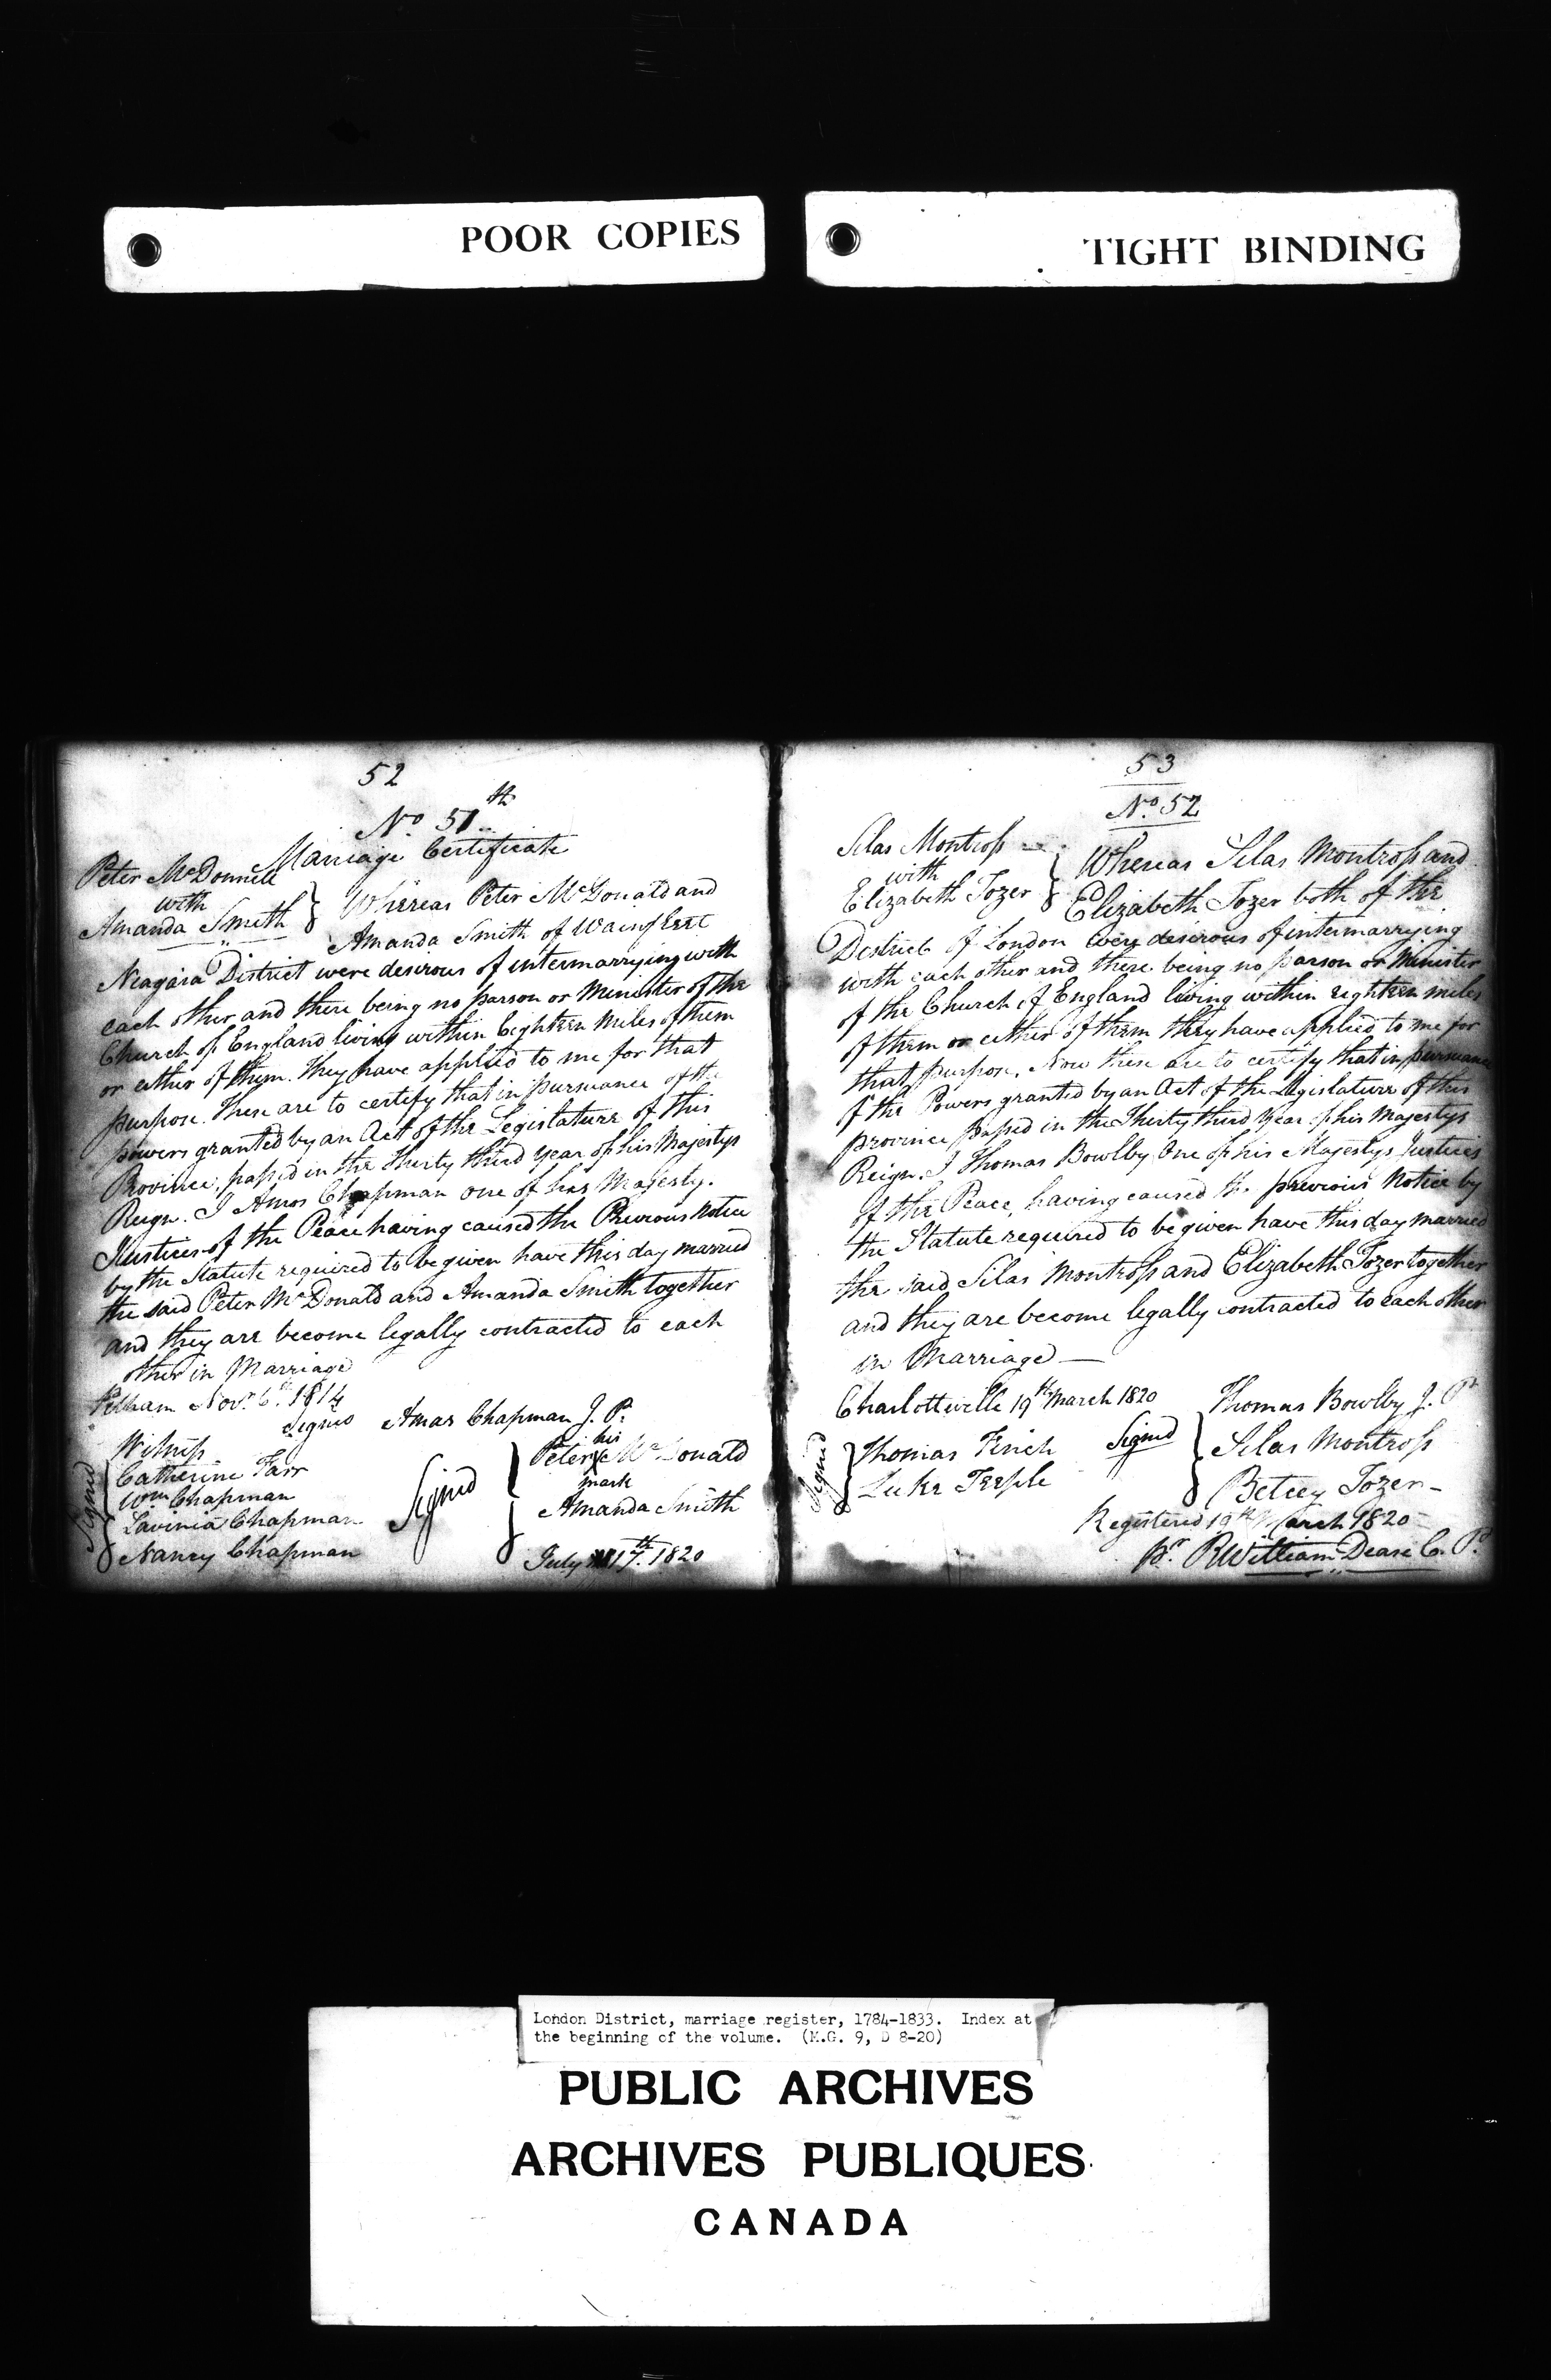 POOR COPIES
TIGHT BINDING
52
No. 51th
Marriage Certificate
Peter McDonnell
with
Amanda Smith
Whereas Peter McDonald and
Amanda Smith of Wainfleet
Niagara District were desirous of intermarrying with
each other and there being no parson or Minister of the
Church of England living within Eighteen Miles of them
or either of them. They have applied to me for that
purpose. These are to certify that in pursuance of the
powers granted by an Act of the Legislature of this
Province, passed in the Thirty third year of his Majestys
Reign. I Amos Chapman one of his Majesty.
Justices of the Peace having caused the Previous Notice
by the Statute required to be given have this day married
the said Peter McDonald and Amanda Smith together
and they are become legally contracted to each
other in Marriage
Pelham Novr. 6th. 1814
Signed Amos Chapman J. P.
Witness
Catherine Farr
Wm Chapman
Lavinia Chapman
Nancy Chapman
Signed
Signed
Peter his X mark McDonald
Amanda Smith
July 17th. 1820
53
No. 52
Silas Montross
with
Elizabeth Tozer
Whereas Silas Montross and
Elizabeth Tozer both of the
District of London were desirous of intermarrying
with each other and there being no parson or Minister
of the Church of England living within eighteen miles
of them or either of them they have applied to me for
that purpose. Now these are to certify that in pursuance
of the Powers granted by an Act of the Legislature of this
province passed in the Thirty third Year of his Majestys
Reign. I Thomas Bowlby One of his Majestys Justices
of the Peace, having caused the previous Notice by
the Statute required to be given have this day married
the said Silas Montross and Elizabeth Tozer together
and they are become legally contracted to each other
in Marriage
Charlotteville 19th March 1820
Thomas Bowlby J. P.
Signed
Thomas Finch
Luke Teeple
Signed
Silas Montross
Betsey Tozer
Registered 19th March 1820
Pr. R William Deare C. P.
London District, marriage register, 1784-1833. Index at
the beginning of the volume. (M.G. 9, D 8-20)
PUBLIC ARCHIVES
ARCHIVES PUBLIQUES
CANADA